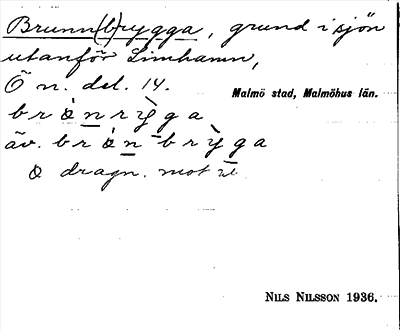 Brunn(b)rygga, grund i sjön
utanför Limhamn,
Ö n. del. 14.
Malmö stad, Malmöhus län.
brònrỳga
äv. bròn-brỳga
o dragn. mot
NILS NILSSON 1936.